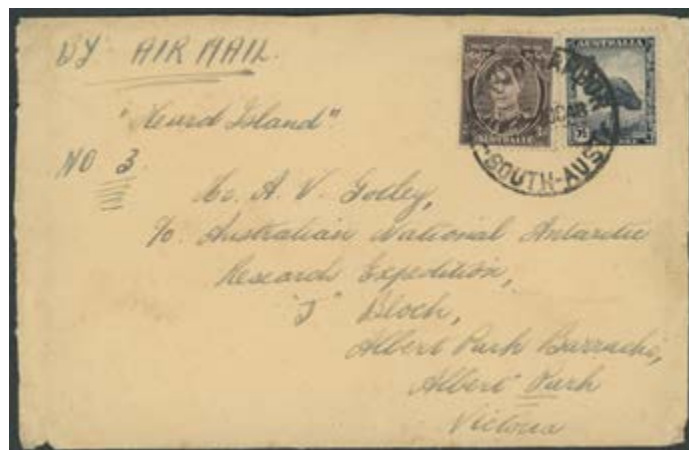 BY AIR MAIL.
"Heard Island"
NO 3.
Mr. A. V. Gotley,
c/o. Australian National Antarctic
Research Expedition,
"J" Block,
Albert Park Barracks,
Albert Park
Victoria
AUSTRALIA
AUSTRALIA
SOUTH-AUST